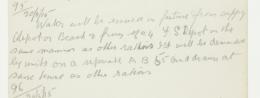 95
30/9/15
Water will be issued in future from supply
depot on Beach & from No 4 F.S. Depot in the
same manner as other rations. It will be demanded
by units on a separate A B 55 and drawn at
same time as other rations
96